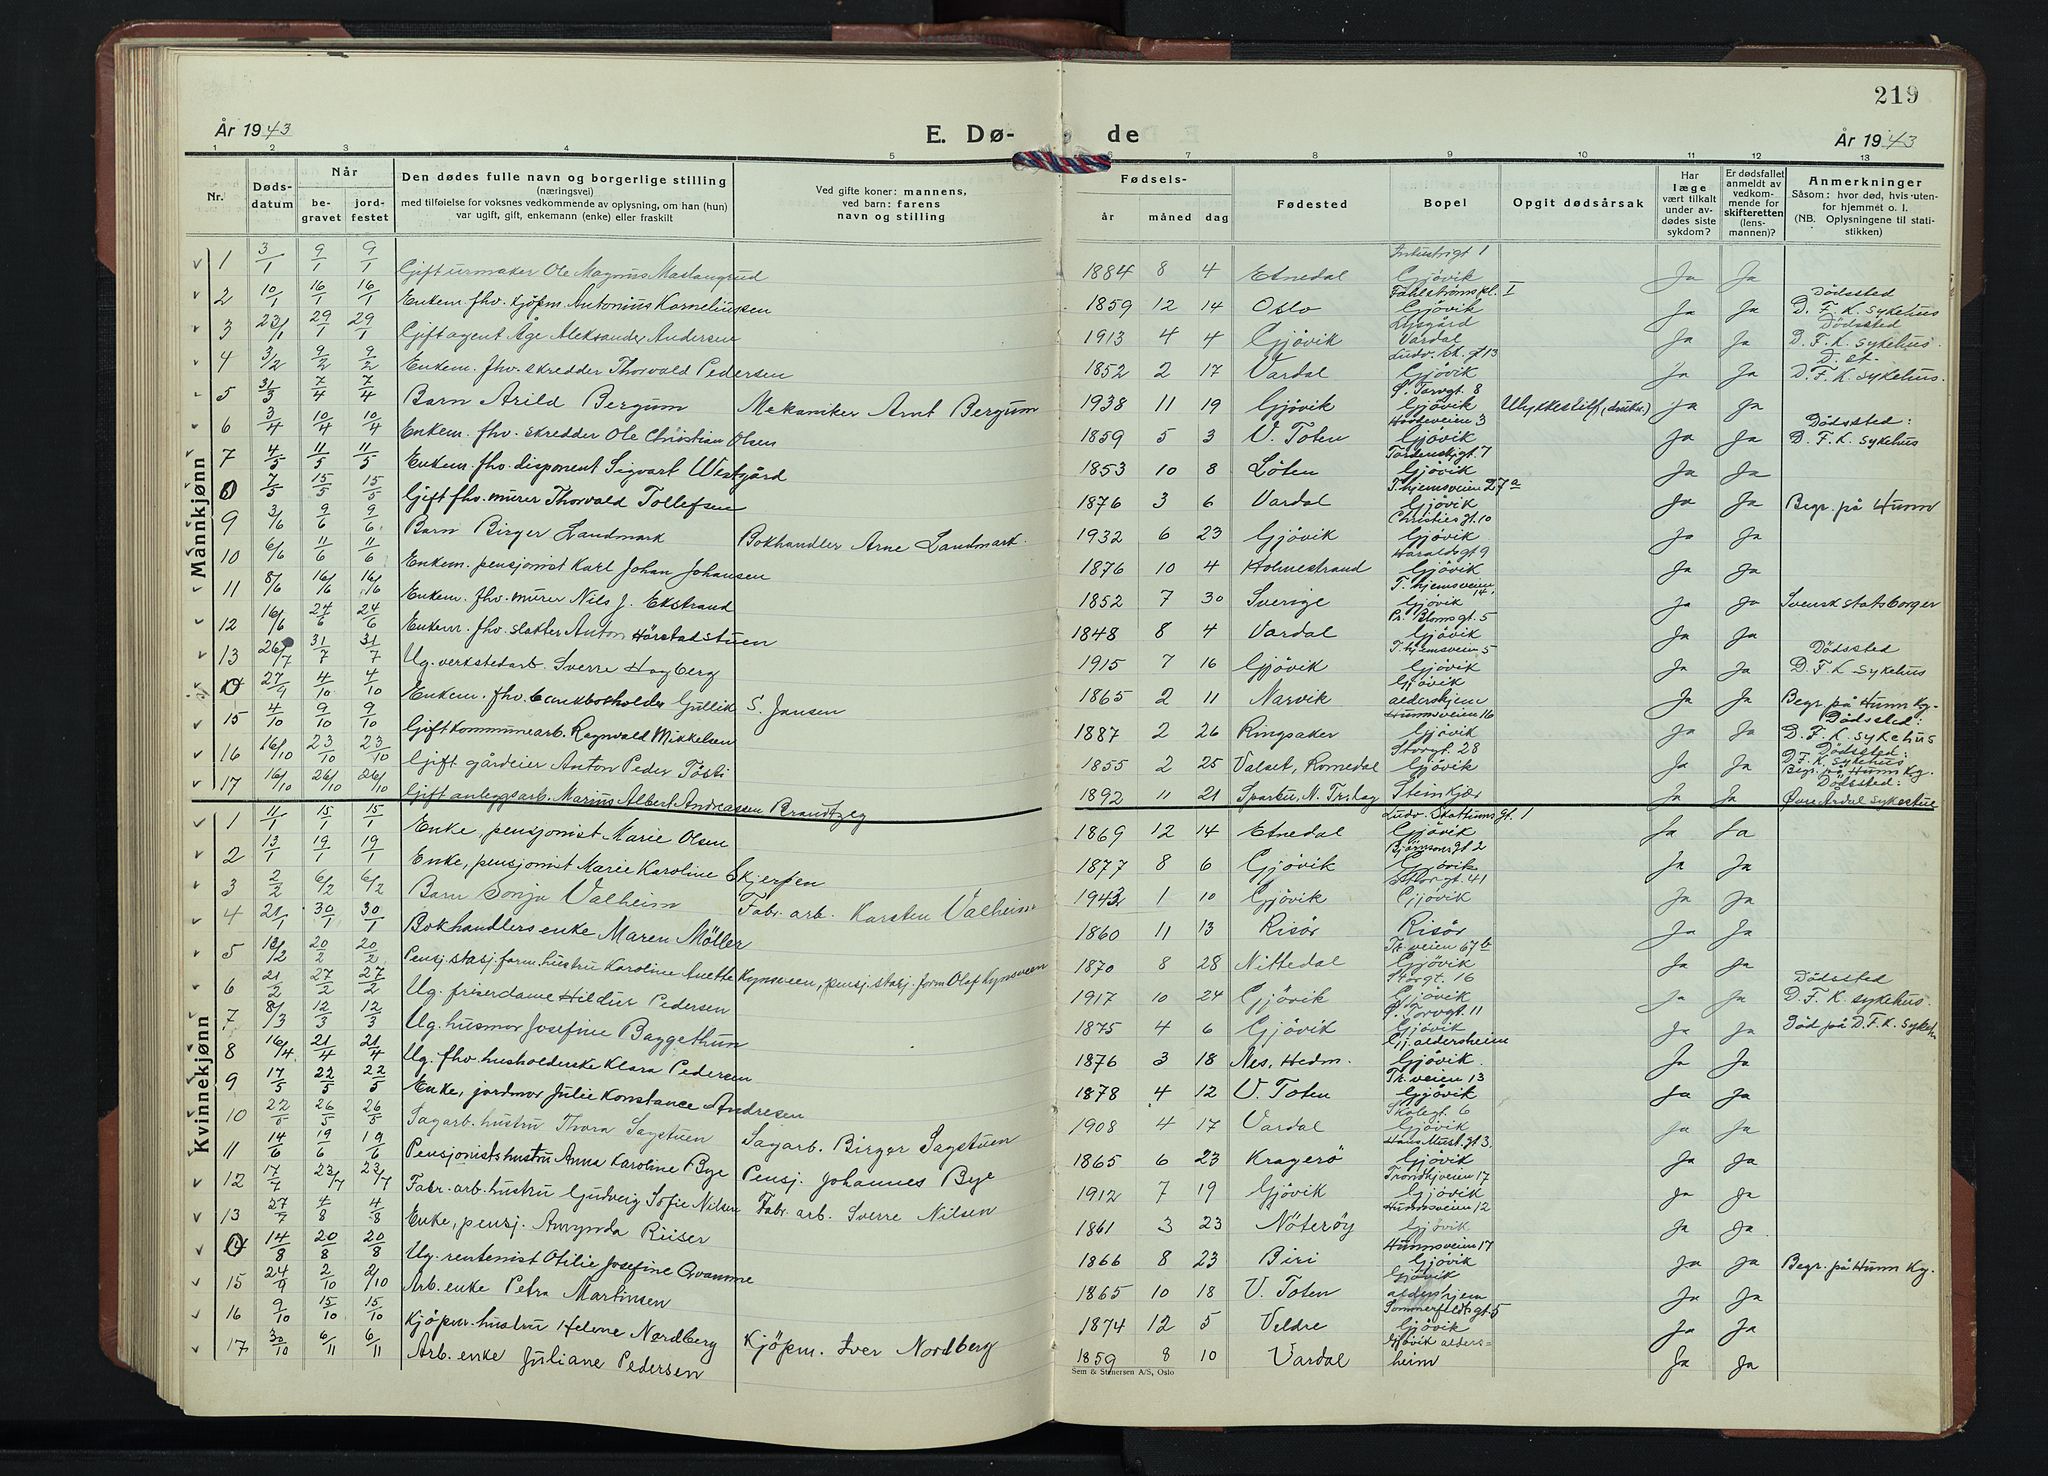 219
År 1943 E. Dø- de År 1943
1 2 3 4 5 6 7 8 9 10 11 12 13
Nr. Døds-datum Når be-gravet jord-festet Den dødes fulle navn og borgerlige stilling (næringsvei) med tilføielse for voksnes vedkommende av oplysning, om han (hun) var ugift, gift, enkemann (enke) eller fraskilt Ved gifte koner: mannens, ved barn: farens navn og stilling Fødsels- år måned dag Fødested Bopel Opgit dødsårsak Har læge vært tilkalt under av-dødes siste sykdom? Er dødsfallet anmeldt av vedkom-mende for skifteretten (lens-mannen)? Anmerkninger Såsom: hvor død, hvis uten-for hjemmet o. l. (NB. Oplysningene til stati-stikken)
Mannkjønn
1 3/1 9/1 9/1 Gift urmaker Ole Magnus Maslangrud 1884 8 4 Etnedal Industrigt 1 Gjövik Ja Ja
2 10/1 16/1 16/1 Enkem. fhv. kjöpm. Antonius Korneliussen 1859 12 14 Oslo Fahlstrømspl. I Gjövik Ja Ja Dödssted D. F. K. Sykehus
3 23/1 29/1 29/1 Gift agent Åge Aleksander Andersen 1913 4 4 Gjövik Lysgård Vardal Ja Ja Dödssted D. F. K. Sykehus.
4 3/2 9/2 9/2 Enkem. fhv. skredder Thorvald Pedersen 1852 2 17 Vardal Ludv. Sk. gt 13 Gjövik Ja Ja D. st. D. F. K. Sykehus.
5 31/3 7/4 7/4 Barn Arild Bergum Mekaniker Arnt Bergum 1938 11 19 Gjövik Ø. Torvgt. 8 Gjövik Ulykkestilf. (drukn.) Ja Ja
6 3/4 10/4 10/4 Enkem. fhv. skredder Ole Christian Olsen 1859 5 3 V. Toten 3 Gjövik Ja Ja Dödssted: D. F. K. Sykehus
7 4/5 11/5 11/5 Enkem. fhv. disponent Sigvart Westgård 1853 10 8 Löten Tordenskj.gt. 7 Gjövik Ja Ja
8 7/5 15/5 15/5 Gift fhv. murer Thorvald Tollefsen 1876 3 6 Vardal T.hjemsveien 27a Gjövik Ja Ja Begr. på Hunn
9 3/6 9/6 9/6 Barn Birger Landmark Bokhandler Arne Landmark. 1932 6 23 Gjövik Christies gt. 10 Gjövik Ja Ja
10 6/6 11/6 11/6 Enkem. pensjonist Karl Johan Johansen 1876 10 4 Holmestrand Haralds gt 9 Gjövik Ja Ja
11 8/6 16/6 16/6 Enkem. fhv. murer Nils J. Ekstrand 1852 7 30 Sverige T.hjemsveien 14 Gjövik Ja Ja Svensk statsborger
12 16/6 24/6 24/6 Enkem. fhv. slakter Anton Hörstadstuen 1848 8 4 Vardal Pr. Bloms gt. 5 Gjövik Ja Ja
13 26/7 31/7 31/7 Ug. verkstedarb. Sverre Hagberg 1915 7 16 Gjövik T.hjemsveien 5 Gjövik Ja Ja Dödssted D. F. K. Sykehus
14 27/9 4/10 4/10 Enkem. fhv. bankbokholder Gullik S. Jansen 1865 2 11 Narvik Gjövik aldershjem Ja Ja Begr. på Hunn Kg.
15 4/10 9/10 9/10 Gift kommunearb. Ragnvald Mikkelsen 1887 2 26 Ringsaker Hunnsveien 16 Gjövik Ja Ja Dödssted: D. F. K. Sykehus
16 16/10 23/10 23/10 Gift gårdeier Anton Peder Tösti 1855 2 25 Valset, Romedal Storgt. 28 Gjövik Ja Ja Dödssted: D. F. K. Sykehus Begr. på Hunn Kg.
17 16/10 26/10 26/10 Gift anleggsarb. Marius Albert Andreassen Brandtzeg 1892 11 21 Sparbu, N. Tr.lag Steinkjær Ja Ja Dödssted: Øvre Årdal sykestue
Kvinnekjønn
1 11/1 15/1 15/1 Enke, pensjonist Marie Olsen 1869 12 14 Etnedal Ludv. Skattums gt. 1 Gjövik Ja Ja
2 13/1 19/1 19/1 Enke, pensjonist Marie Karoline Skjerpen 1877 8 6 Gjövik Björnsons gt 2 Gjövik Ja Ja
3 2/2 6/2 6/2 Barn Sonja Valheim Fabr. arb. Karsten Valheim 1943 1 10 Gjövik Storgt. 41 Gjövik Ja Ja
4 21/1 30/1 30/1 Bokhandlers enke Maren Möller 1860 11 13 Risör Risör Ja Ja
5 13/2 20/2 20/2 Pensj. stasj. form. hustru Karoline Anette Kynsveen, pensj. stasj. form Olaf Kynsveen 1870 8 28 Nittedal Tr. veien 67b Gjövik Ja Ja
6 21/2 27/2 27/2 Ug. friserdame Hildur Pedersen 1917 10 24 Gjövik Storgt. 16 Gjövik Ja Ja Dödssted D. F. K. Sykehus.
7 8/3 12/3 12/3 Ug. husmor Josefine Baggethun 1875 4 6 Gjövik Ø. Torvgt. 11 Gjövik Ja Ja Död på D. F. K. Sykeh.
8 16/4 21/4 21/4 Ug. fhv. husholderske Klara Pedersen 1876 3 18 Nes, Hedm. Gj. aldersheim Gjövik Ja Ja
9 17/5 22/5 22/5 Enke, jordmor Julie Konstance Andresen 1878 4 12 V. Toten Tr. veien 13 Gjövik Ja Ja
10 22/5 26/5 26/5 Sagarb. hustru Thora Sagstuen Sagarb. Birger Sagstuen 1908 4 17 Vardal Skolegt. 6 Gjövik Ja Ja
11 14/6 19/6 19/6 Pensjonists hustru Anna Karoline Bye Pensj. Johannes Bye 1865 6 23 Kragerö Hans Must. gt 3. Gjövik Ja Ja
12 17/7 23/7 23/7 Fabr. arb. hustru Gudveig Sofie Nilsen Fabr. arb. Sverre Nilsen 1912 7 19 Gjövik Trondhjveien 17 Gjövik Ja Ja
13 27/7 4/8 4/8 Enke, pensj. Amynda Riiser 1861 3 23 Nöteröy Hunnsveien 12 Gjövik Ja Ja
14 14/8 20/8 20/8 Ug. rentenist Otilie Josefine Qvamme 1866 8 23 Biri Hunnsveien 17 Gjövik Ja Ja Begr. på Hunn Kg.
15 24/9 2/10 2/10 Arb. enke Petra Martinsen 1865 10 18 V. Toten Gjövik aldershjem Ja Ja
16 9/10 15/10 15/10 Kjöpm. hustru Helene Nordberg Kjöpm. Iver Nordberg 1874 12 5 Veldre Sommerfeldts gt. 5 Gjövik Ja Ja
17 30/10 6/11 6/11 Arb. enke Juliane Pedersen 1859 8 10 Vardal Gjövik alders-heim Ja Ja
Sem & Stenersen A/S, Oslo